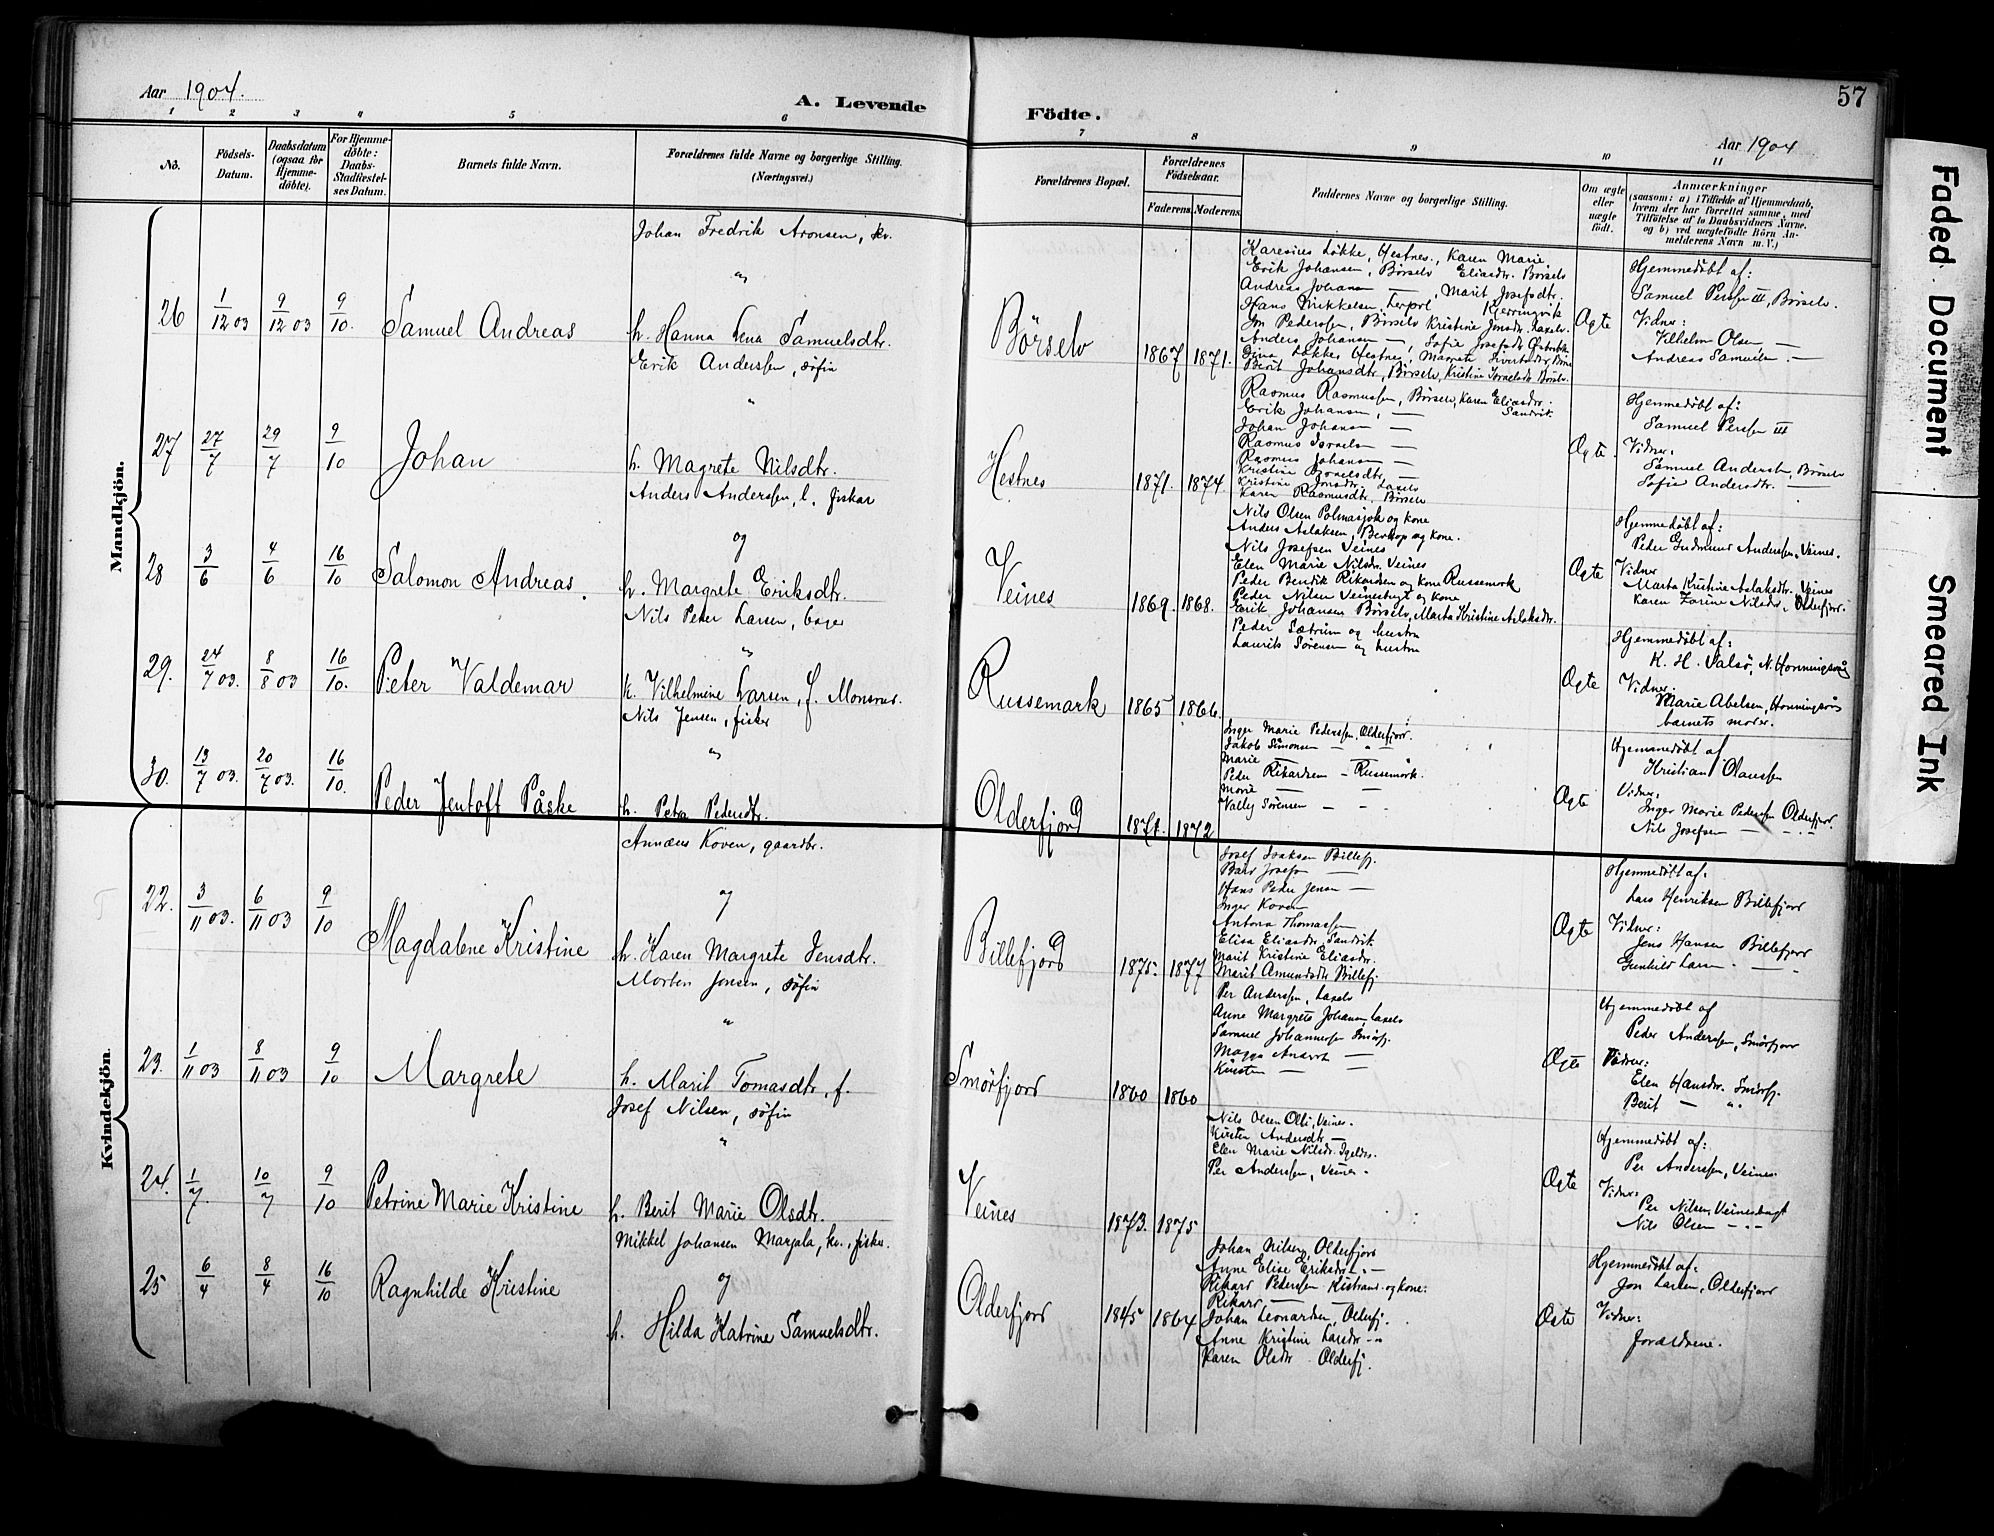 Aar 1904.
A. Levende
Födte.
57
Aar 1904
1 2 3 4 5 6 7 8 9 10 11
No.
Födsels-Datum.
Daabsdatum (ogsaa for Hjemme-döbte).
For Hjemme-döbte: Daabs-Stadfæstel-ses Datum.
Barnets fulde Navn.
Forældrenes fulde Navne og borgerlige Stilling. (Næringsvei.)
Forældrenes Bopæl.
Forældrenes Födselsaar.
Faderens. Moderens.
Faddernes Navne og borgerlige Stilling.
Om ægte eller uægte födt.
Anmærkninger
(saasom: a) i Tilfælde af Hjemmedaab, hvem der har forrettet samme, med Tilföielse af to Daabsvidners Navne. og b) ved uægtefödte Börn Anmelderens Navn m. V.)
Mandkjön.
26 1/12 03 9/12 03 9/10. Samuel Andreas
Johan Fredrik Aronsen, kv.
"
h. Hanna Lena Samuelsdtr.
Börselv 1867 1871.
Karesius Løkke, Hestnes., Karen Marie
Erik Johansen, Börselv Eliasdtr. Börselv
Andreas Johansen —, Marit Josefsdtr.
Hans Mikkelsen, Lerpol Kjerringvik
Jon Pedersen, Börselv Kristine Jonsdtr. Laxelv.
Anders Johansen —, Sofie Josefsdtr
Gina Løkke, Hestnes, Magrete Sivertsdtr
Berit Johansdtr, Börselv, Kristine Israelsdtr Börselv.
Ægte
Hjemmedöbt af:
Samuel Perssen III, Börselv.
Vidner:
Vilhelm Olsen —
Andreas Samuelsen —
27 27/7 29/7 9/10 Johan
Erik Anderssen, söfin
"
h. Magrete Nilsdtr.
Hestnes 1871. 1874.
Rasmus Rasmussen, Börselv, Karen Eliasdtr.
Erik Johansen, — Sandvik.
Johan Johansen —
Rasmus Israelsen —
Rasmus Johansen —
Kristine Israelsdtr —
Kristine Jonsdtr. Laxelv
Karen Rasmusdtr. Börselv
Ægte.
Hjemmedöbt af:
Samuel Perssen III
Vidner:
Samuel Andersen, Börselv
Sofie Andersdtr. —
28 3/6 4/6 16/10 Salomon Andreas.
Anders Anderssen, l. fisker
og
h. Margrete Eriksdtr.
Veines 1869. 1868.
Nils Olsen Polmasjok og kone
Anders Aslaksen, og kone.
Nils Josefsen Veines
Elen Marie Nilsdr. Veines
Peder Bendik Rikardsen og kone Russemark
Peder Nilsen Veinesbugt og kone
Erik Johansen Börselv, Marta Kristine Aslaksdtr.
Ægte
Hjemmedöbt af:
Peder Gudmund Anderssen, Veines.
Vidner
Marta Kristine Aslaksdtr. Veines
Karen Zarine Nilsdtr, Olderfjord.
29. 24/7 03. 8/8 03 16/10. Peter Valdemar
Nils Peter Larsen, bager
"
h. Vilhelmine Larsen, f. Monsrud.
Russemark 1865 1866.
Peder Sætrum og hustru
Laurits Sörensen og hustru
Ægte
Hjemmedöbt af:
K. H. Valsö, N. Honningsvåg
Vidner
Marie Abelsen, Honningsvåg
barnets moder.
30. 13/7 03. 20/7 03. 16/10. Peder Jentoft Påske
Nils Jensen, fisker
"
h. Petra Pedersdtr.
Olderfjord 1871. 1872
Inger Marie Pedersen, Olderfjord.
Jakob Simonsen — " —
Marie — —
Peder Rikardsen — Russemark.
Marie — —
Vally Sörensen — —
Ægte
Hjemmedöbt af
Kristian Olaussen
Vidner,
Inger Marie Pedersen Olderfjord.
Nils Josefsen — " —
Kvindekjön.
22. 3/11 03. 6/11 03 9/10 Magdalene Kristine
Annæus Koven, gaardbr.
og
h. Karen Margrete Jensdtr.
Billefjord 1875. 1877
Josef Isaksen Billefj.
Bård Josefsn —
Hans Peder Jensen —
Inger Koven
Antona Thomassen
Elisa Eliasdtr, Sandvik.
Marit Kristine Eliasdr.
Marit Amundsdtr Billefj
Ægte
Hjemmedöbt af:
Lars Henriksen Billefjord
Vidner:
Jens Hansen Billefjord
Gunhild Larsen — —
23. 1/11 03 8/11 03 9/10 Margrete
Morten Jonsen, söfin
"
h. Marit Tomasdtr, f.
Smörfjord 1860 1860
Per Anderssen, Laxelv
Anne Margrete Johansen, Laxelv
Samuel Johannessen Smörfj.
Magga —
Kirsten —
Ægte
Hjemmedöbt af
Peder Anderssen, Smörfjord
Vidner:
Elen Hansdr. Smörfj.
Berit — "
24. 1/7. 10/7 9/10 Petrine Marie Kristine
Josef Nilsen, söfin
"
h. Berit Marie Olsdtr.
Veines 1873. 1875
Nils Olsen Olli, Veines.
Kirsten Andersdtr —
Elen Marie Nilsdr.
Per Anderssen, Veines.
Ægte
Hjemmedöbt af:
Per Anderssen, Veines
Vidner:
Per Nilsen, Veinesbugt
Nils Olsen — " —
25 6/4 8/4 16/10 Ragnhilde Kristine
Mikkel Johansen Marjala, kv., fisker
og
h. Hilda Katrine Samuelsdtr.
Olderfjord 1845 1864
Johan Nilsen, Olderfjord
Anne Elise Eriksdtr —
Rikard Pedersen Kistrand. og kone:
Rikard — —
Johan Leonardsen, Olderfj.
Anne Kristine Larsdr — "
Karen Olsdtr Olderfj.
Ægte
Hjemmedöbt af:
Jon Larsen, Olderfjord
Vidner:
Forældrene.
Faded Document Smeared Ink